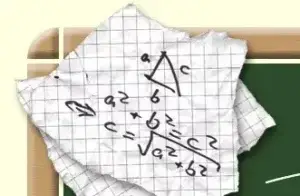 a c
b
⇒ a2 + b2 = c2
c = √a2 + b2